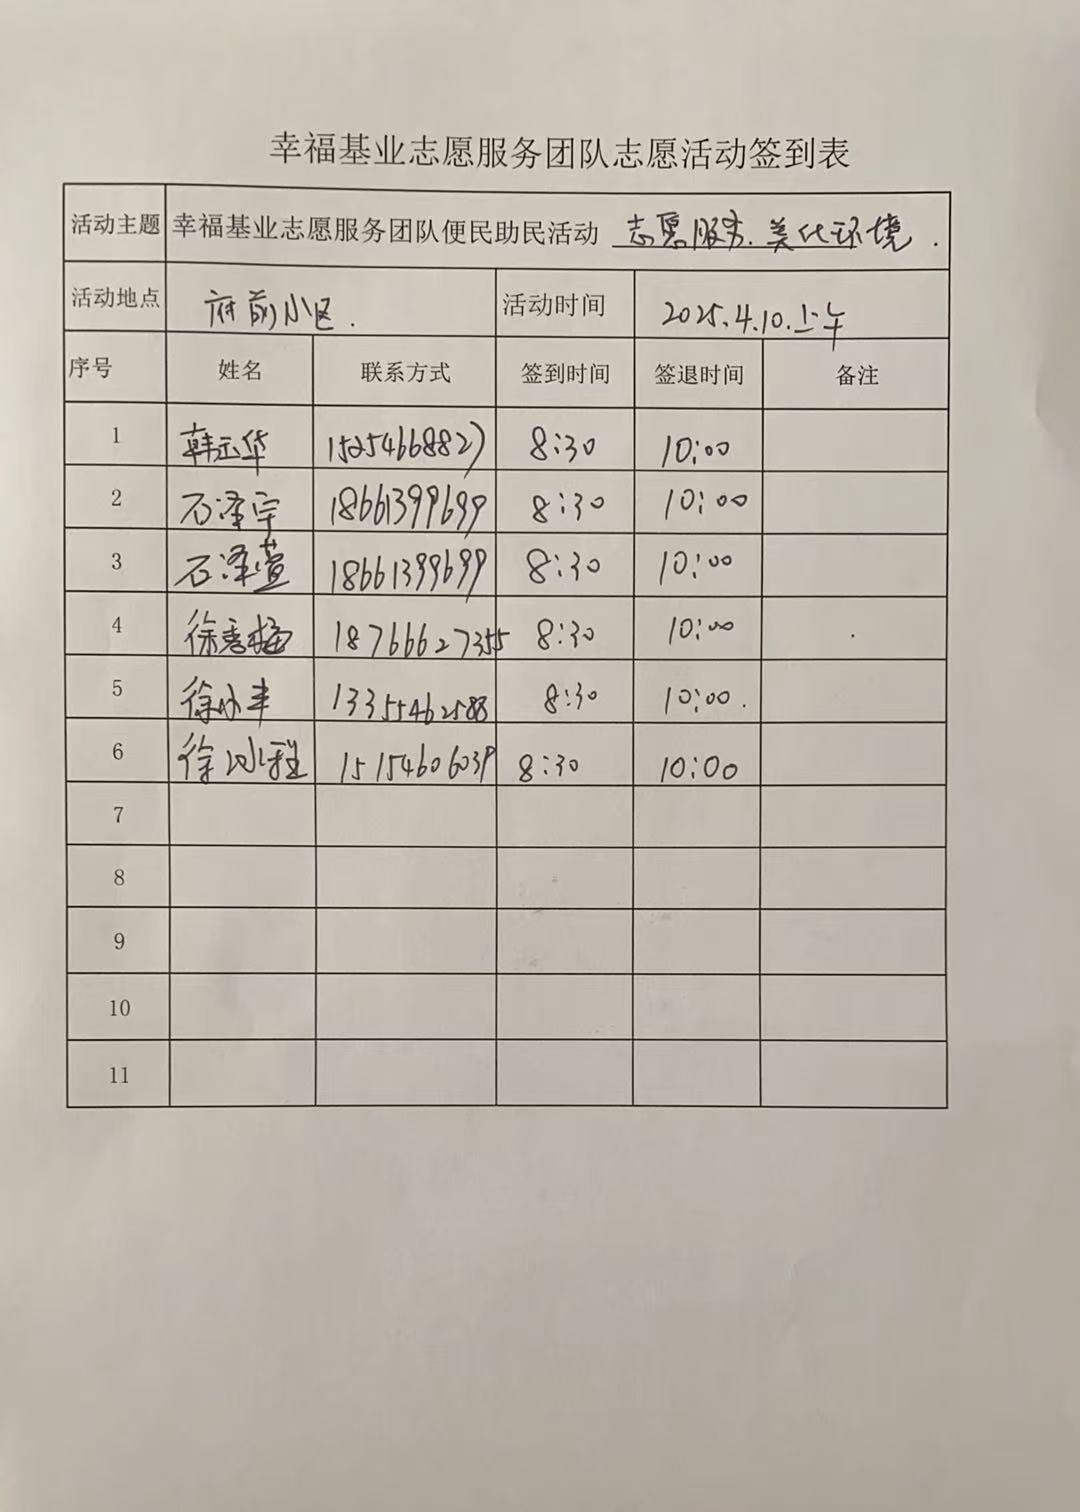 幸福基业志愿服务团队志愿活动签到表
活动主题 幸福基业志愿服务团队便民助民活动 志愿服务.美化环境.
活动地点 府前小区. 活动时间 2025.4.10.上午
序号 姓名 联系方式 签到时间 签退时间 备注
1 韩云华 15254668827 8:30 10:00
2 石泽宇 18661399699 8:30 10:00
3 石泽萱 18661399699 8:30 10:00
4 徐秀梅 18766627355 8:30 10:00
5 徐小丰 13355462588 8:30 10:00.
6 徐 15154606039 8:30 10:00
7
8
9
10
11